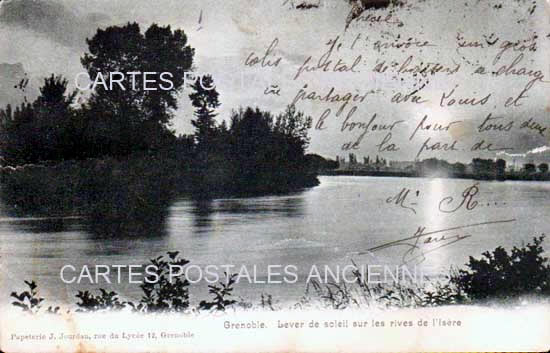 Je t'envoie un gros
colis postal de baisers à charge
de partager avec Louis et
le bonjour pour tous deux
de la part de
Mr R...
CARTES POSTALES
CARTES POSTALES ANCIENNES
Grenoble. Lever de soleil sur les rives de l'Isère
Papeterie J. Jourdan, rue du Lycée 12, Grenoble